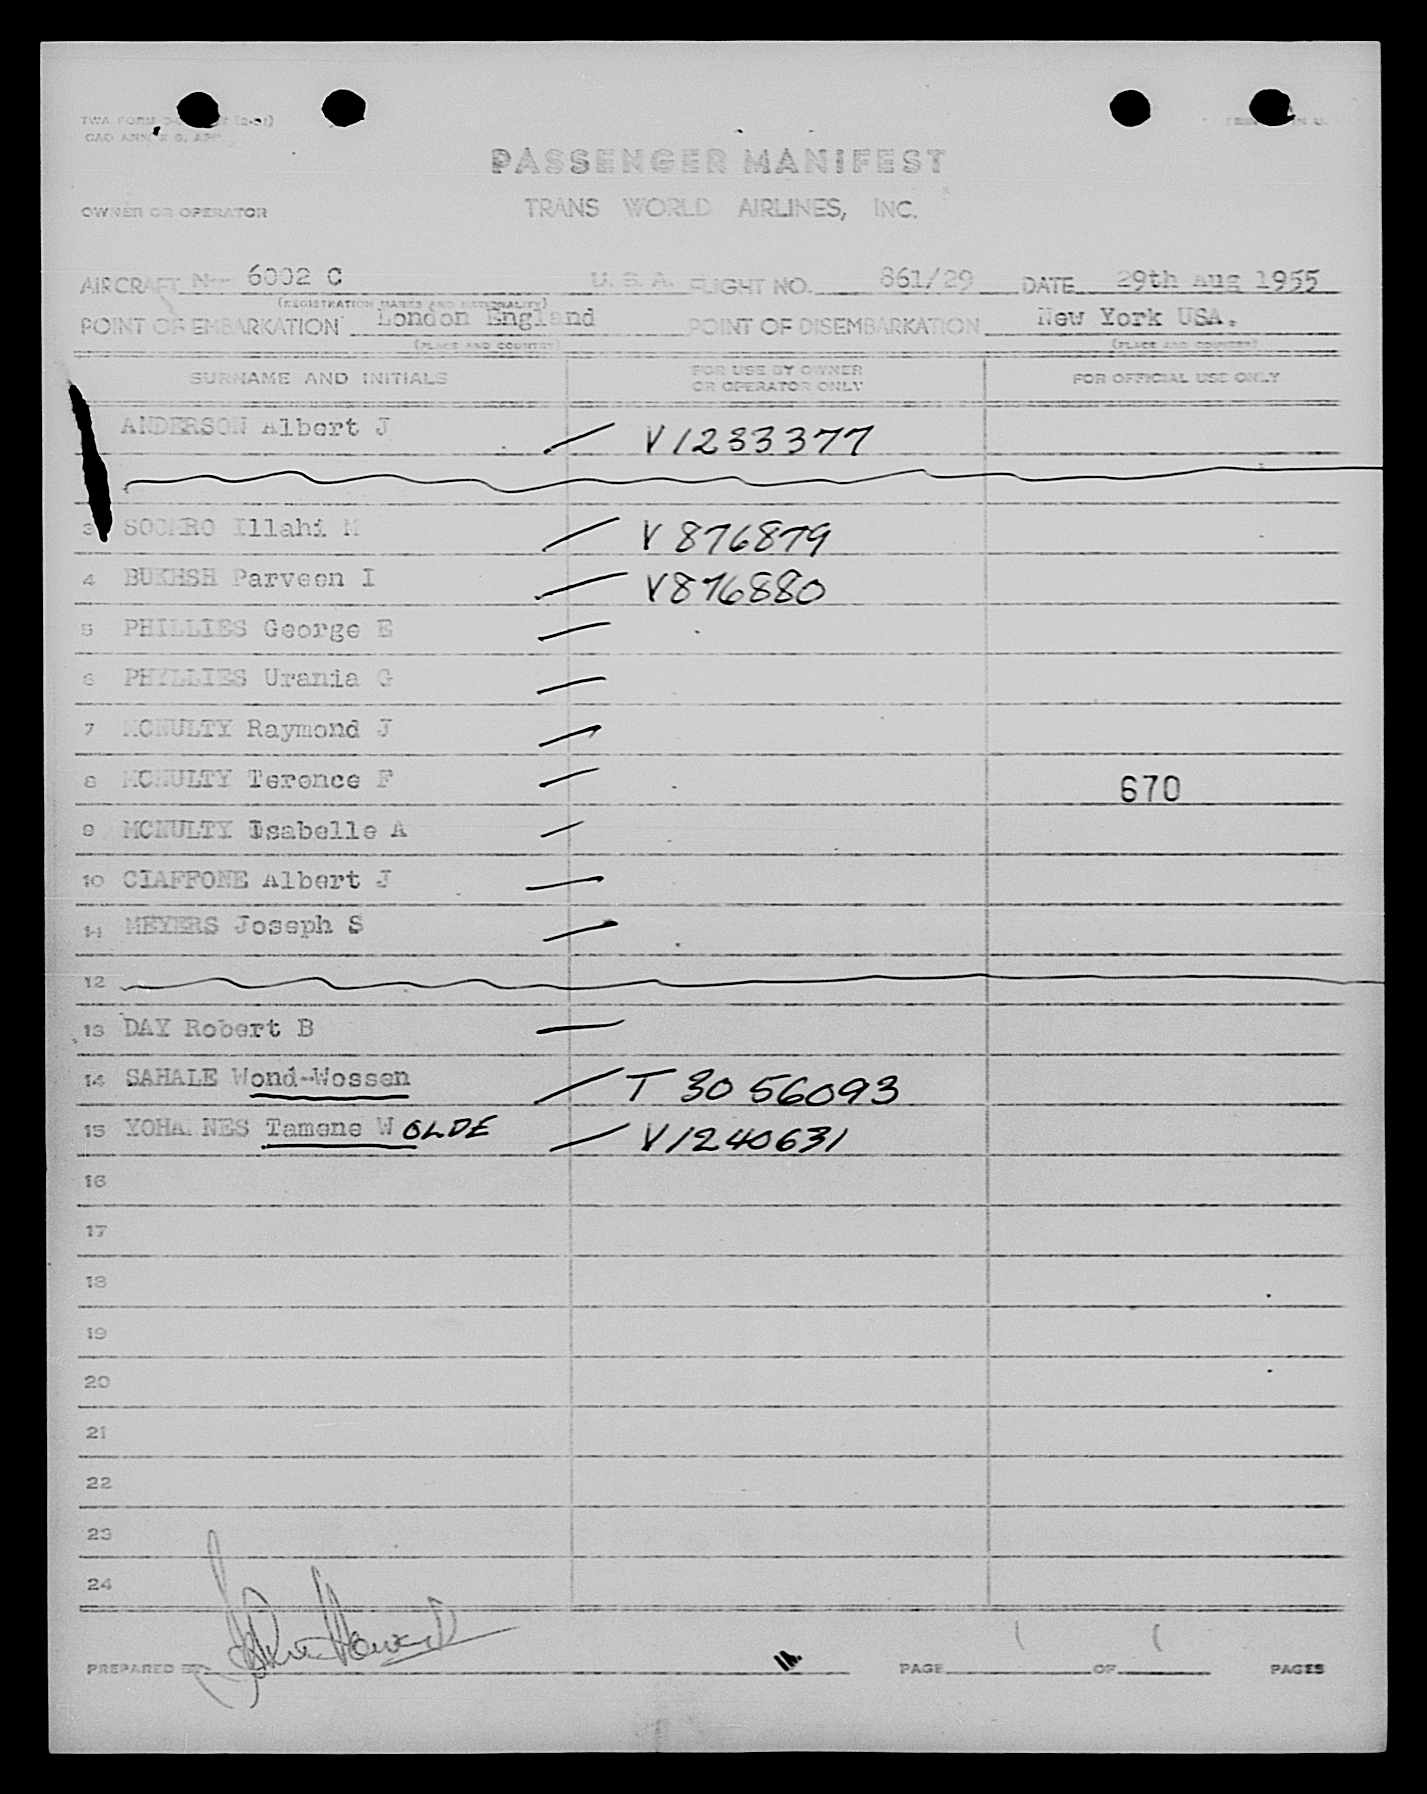 TWA FORM
PASSENGER MANIFEST
OWNER OR OPERATOR
TRANS WORLD AIRLINES, INC.
AIRCRAFT N 6002 C U. S. A. FLIGHT NO. 861/29 DATE 29th Aug 1955
(REGISTRATION MARKS AND NATIONALITY)
POINT OF EMBARKATION London England POINT OF DISEMBARKATION New York USA.
(PLACE AND COUNTRY) (PLACE AND COUNTRY)
SURNAME AND INITIALS FOR USE BY OWNER OR OPERATOR ONLY FOR OFFICIAL USE ONLY
ANDERSON Albert J V1233377
3 Illahi M V876879
4 BUKHSH Parveen I V876880
5 PHILLIES George E
6 PHYLLIES Urania G
7 MCNULTY Raymond J
8 MCNULTY Terence F 670
9 MCNULTY Isabelle A
10 CIAFFONE Albert J
11 MEYERS Joseph S
12
13 DAY Robert B
14 SAHALE Wond-Wossen T 3056093
15 YOHANNES Tamene WOLDE V1240631
16
17
18
19
20
21
22
23
24
PREPARED BY PAGE 1 OF 1 PAGES